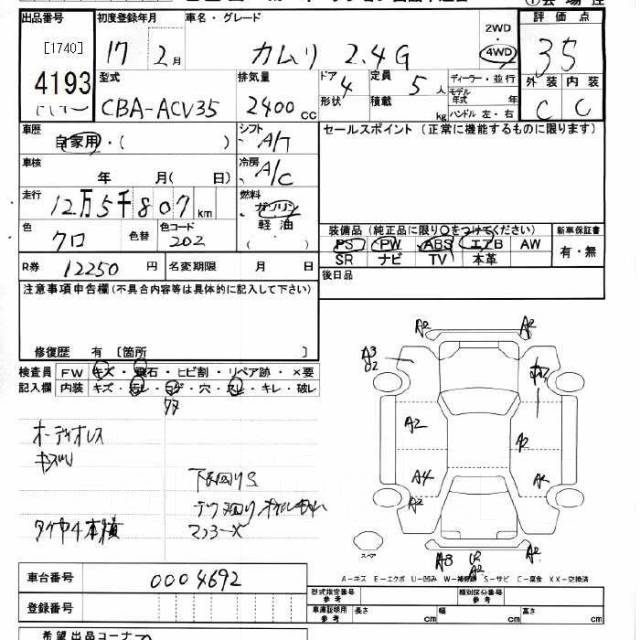 出品番号 初度登録年月 車名・グレード 2WD 評価点
[1740] 17 2月 カムリ 2.4G 4WD 35
4193 型式 排気量 ドア 4 定員 5人 ディーラー・並行 外装 内装
CBA-ACV35 2400cc 形状 積載 kg モデル年式 年式 ハンドル 左・右 C C
車歴 自家用・( ) シフト A/T セールスポイント(正常に機能するものに限ります)
車検 年 月(日) 冷房 A/C
走行 12万5千807km 燃料 ガソリン
軽油
色 クロ 色替 色コード 202 ( ) 装備品(純正品に限り○をつけてください) 新車保証書
PS PW ABS エアB AW 有・無
R券 12250円 名変期限 月 日 SR ナビ TV 本革
注意事項申告欄(不具合内容等は具体的に記入して下さい) 後日品
修復歴 有 [箇所
検査員 FW キズ・飛石・ヒビ割・リペア跡・×要
記入欄 内装 キズ・汚レ・コゲ・穴・スレ・キレ・破レ
A2 A2
A3
A2 A2
A4 A2
A2
オーディオレス
キズU
下廻りS
タイヤ4本積 マフラーX
スペア
A3 U2 A2
A2
A-キズ E-エクボ U-凹み W-補修跡 S-サビ C-腐食 XX-交換済
車台番号 0004692 型式指定番号 参考 類別区分番号 参考
登録番号 車庫証明用 参考 長さ cm 幅 cm 高さ cm
希望出品コーナー